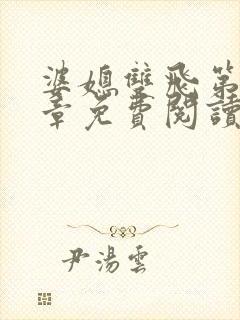 婆媳雙飛第
章免費閱讀
尹湯雲